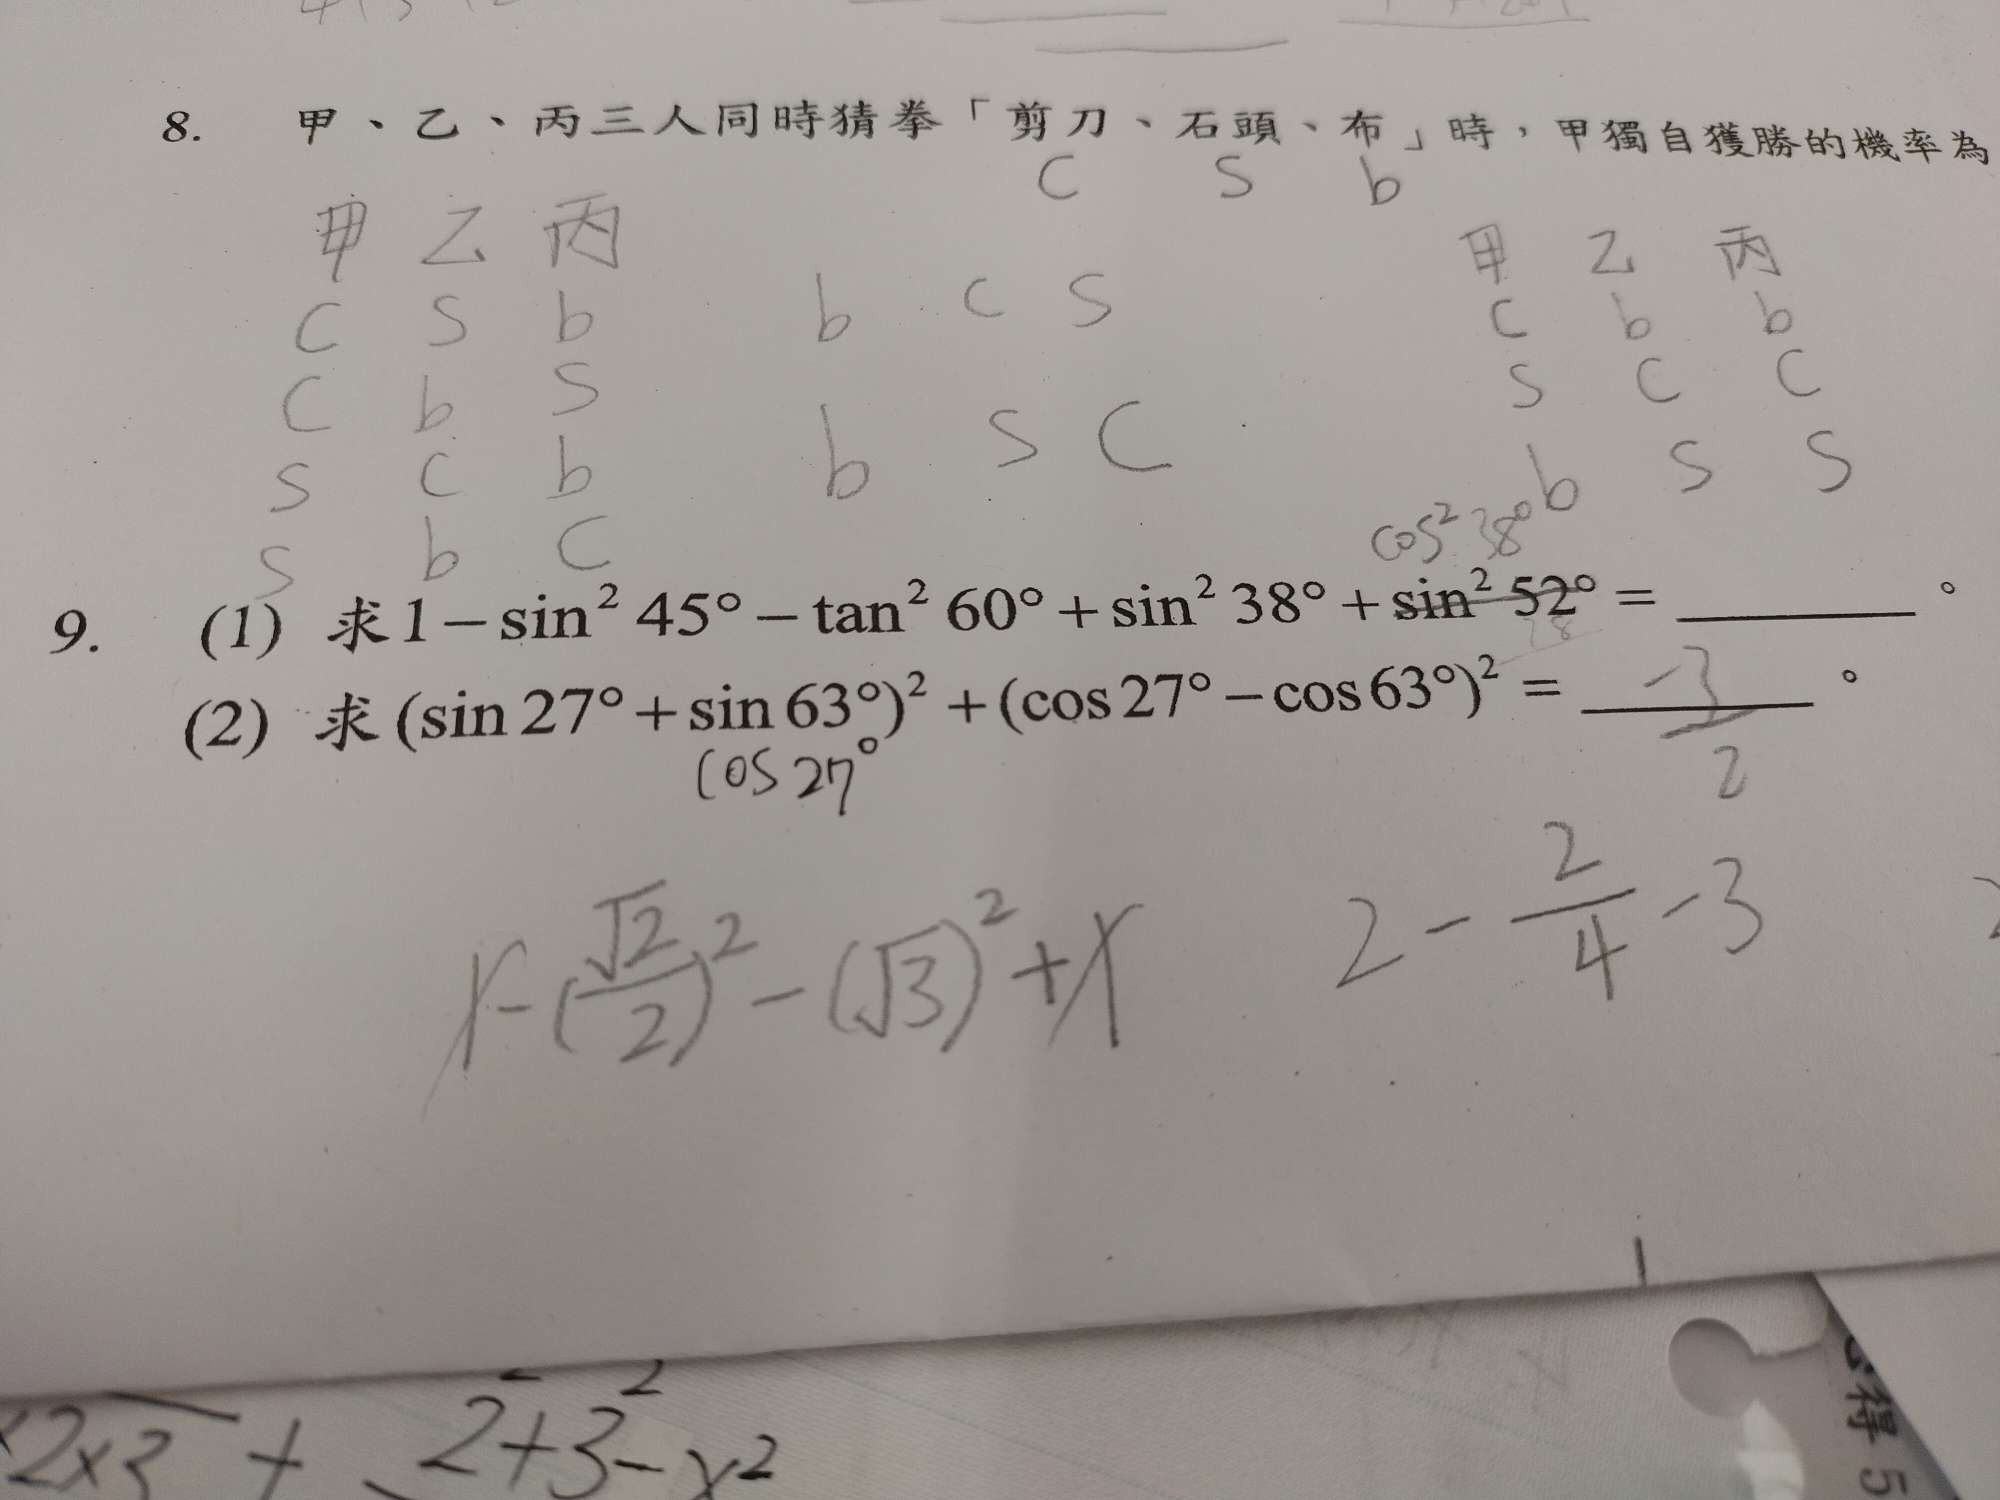 8. 甲、乙、丙三人同時猜拳「剪刀、石頭、布」時，甲獨自獲勝的機率為
c s b
甲 乙 丙
c s b
c b s
s c b
s b c
b c s
b s c
甲 乙 丙
c b b
s c c
b s s
cos² 38°
9. (1) 求 1 − sin² 45° − tan² 60° + sin² 38° + sin² 52° = ________ 。
(2) 求 (sin 27° + sin 63°)² + (cos 27° − cos 63°)² = ________ 。
cos 27°
-3/2
1 - (√2/2)² - (√3)² + 1
2 - 2/4 - 3
2×3 + 2+3²-x²
得 5